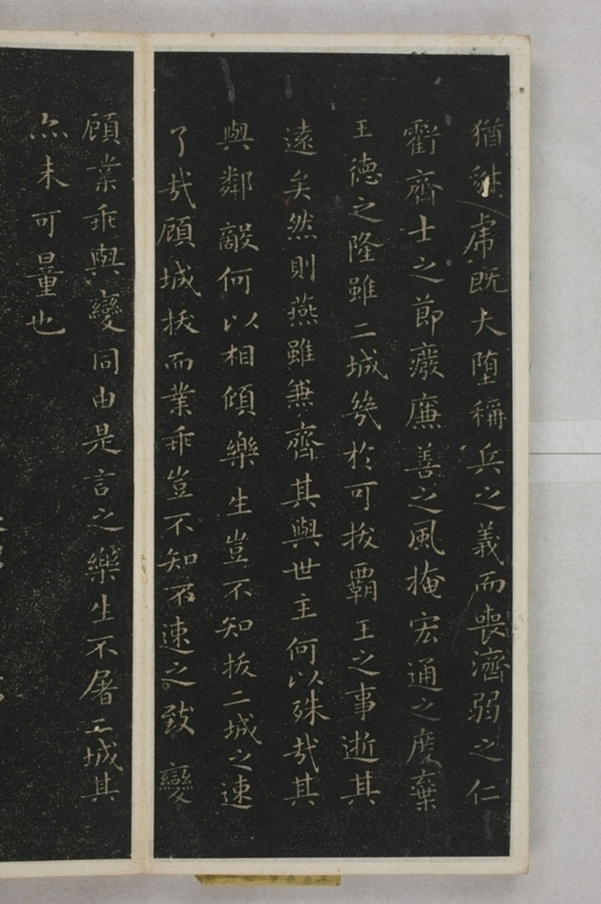 猶豺虎既大堕稱兵之義而喪濟弱之仁
虧齊士之節廢廉善之風掩宏通之度棄
王德之隆雖二城幾於可拔霸王之事逝其
遠矣然則燕雖兼齊其與世主何以殊哉其
與鄰敵何以相傾樂生豈不知拔二城之速
了哉顧城拔而業乖豈不知不速之致變
顧業乖與變同由是言之樂生不屠二城其
亦未可量也